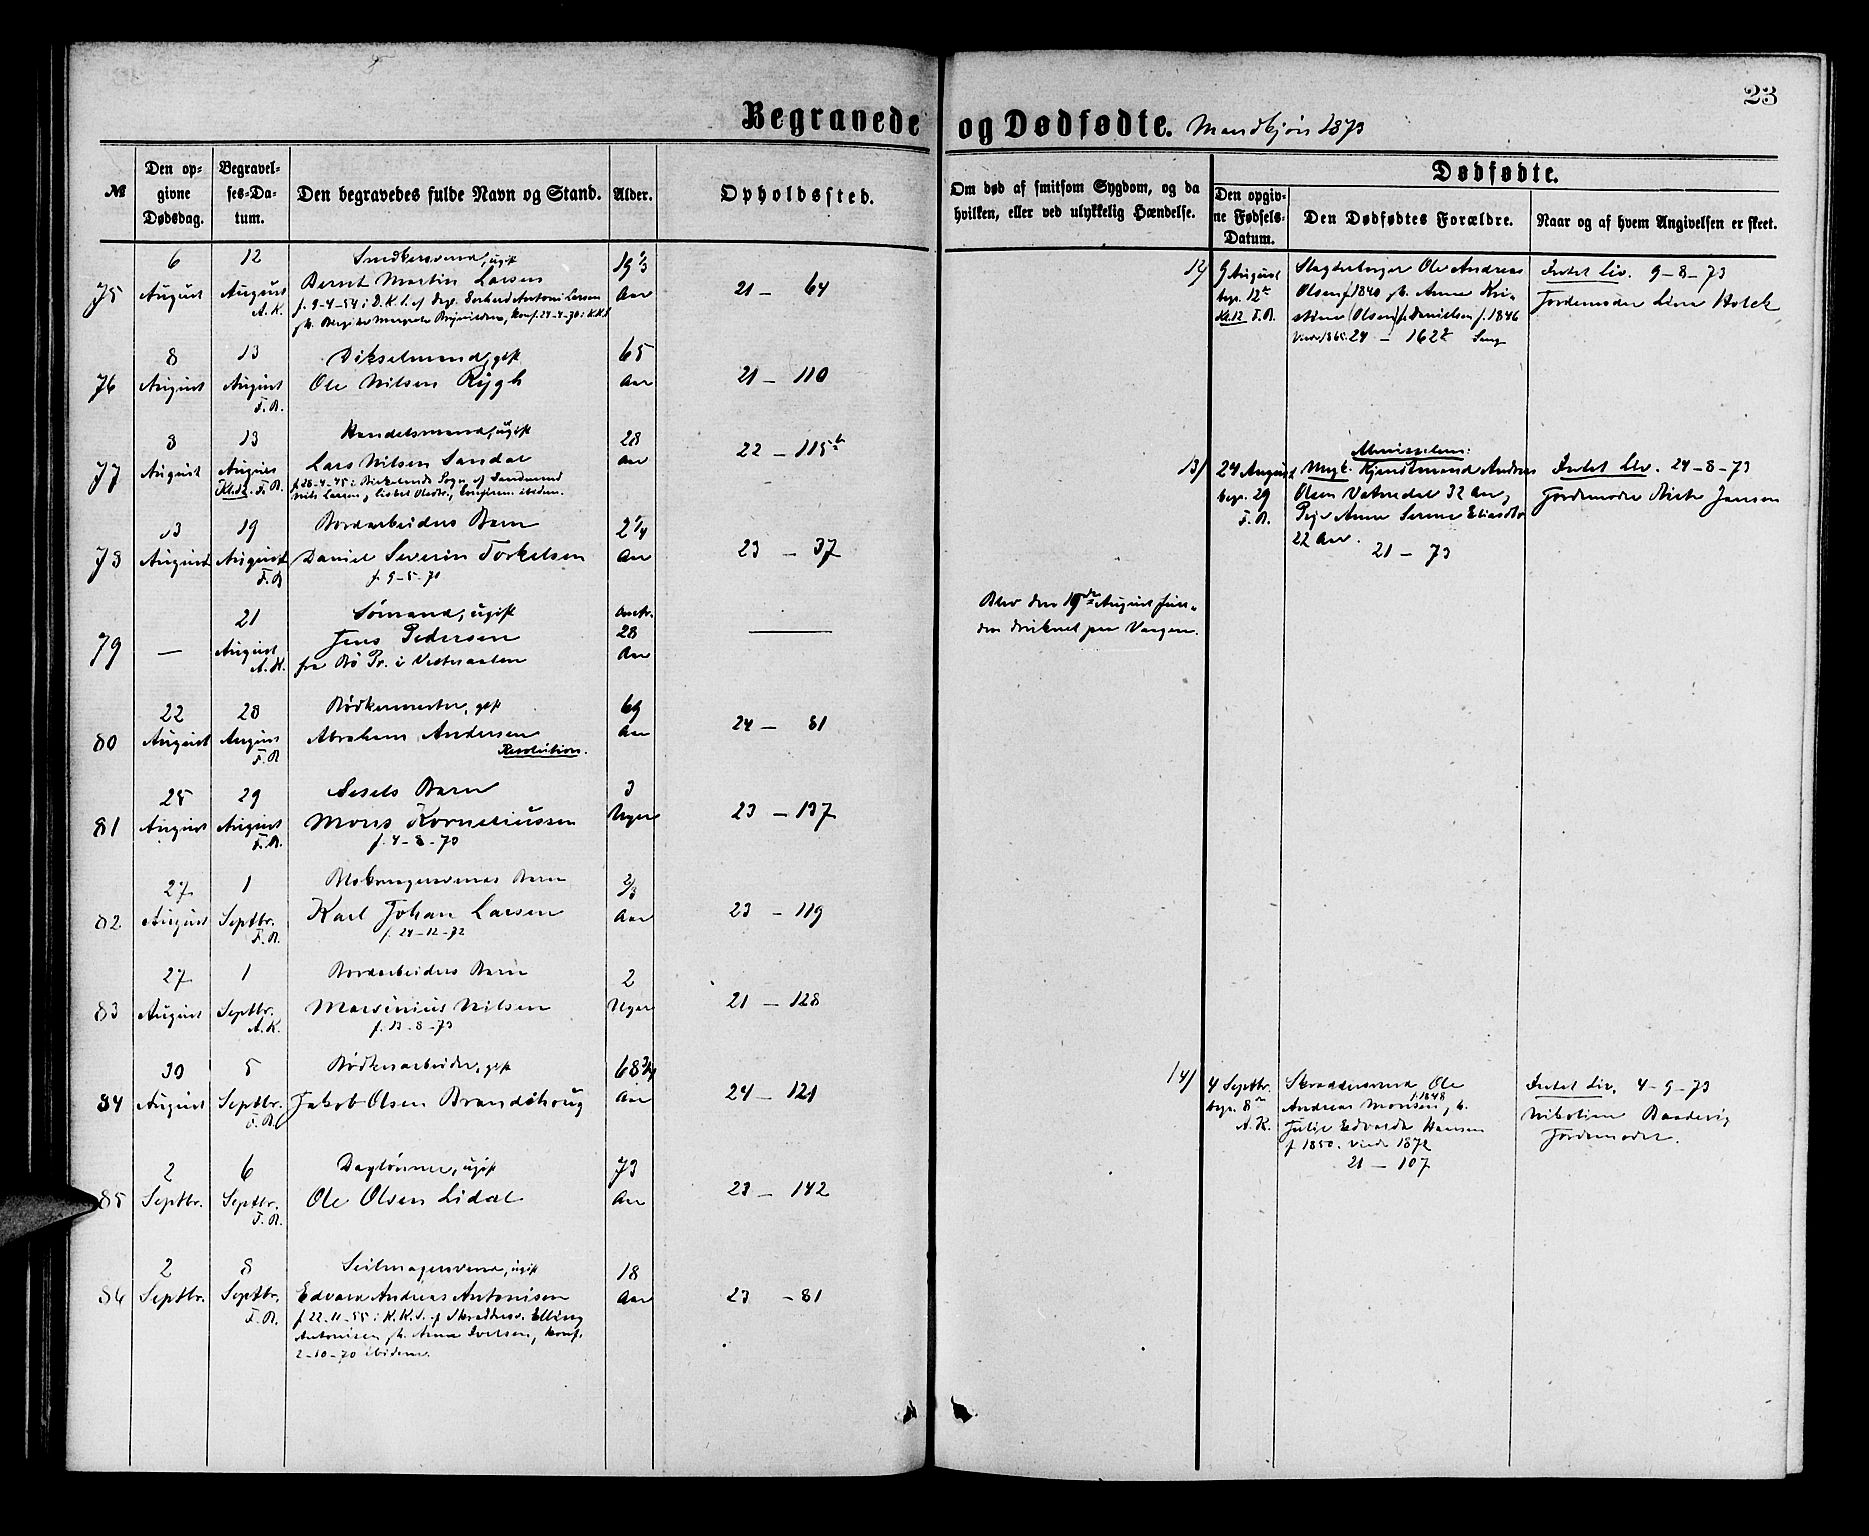 23
Begravede og Dødfødte. Mandkjøn 1873
№
Den opgivne Dødsdag.
Begravelses-Datum.
Den begravedes fulde Navn og Stand.
Alder.
Opholdssted.
Om død af smitsom Sygdom, og da hvilken, eller ved ulykkelig Hændelse.
Dødfødte.
Den opgivne Fødsels-Datum.
Den Dødfødtes Forældre.
Naar og af hvem Angivelsen er skeet.
75
6 August
12 August A. K.
Snedkersvend, ugift
Bernt Martin Larsen
f. 9-4-54 i D. K. S. af Antoni Larsen
konf. 24-4-70 i K.K.S
19 1/3 Aar
21 - 64
76
8 August
13 August F. R.
gift
Ole Nilsen Rygh
65 Aar
21 - 110
77
8 August
13 August Kl. 12. F. R.
Handelsmand, ugift
Lars Nilsen Sandal
f. 28-4-45 i Sogn af
Nils Larsen, ibidem.
28 Aar
22 - 115 b
78
13 August
19 August F. R
Bordarbeiders Barn
Daniel Severin Torkelsen
f. 9-5-71
2 1/4 Aar
23 - 37
79
—
21 August A. K.
Sømand, ugift
Jens Pedersen
fra Bø Pr. i Vesteraalen
28 Aar
Blev den 19de August funden druknet paa Vaagen.
80
22 August
28 August F. R
Bødkermester, gift
Abraham Andersen
Resolution.
69 Aar
24 - 81
81
25 August
29 August F. R.
Barn
Mons Korneliussen
f. 4-8-70
3 Uger
23 - 137
82
27 August
1 Septbr. F. R.
Blokmagersvends Barn
Karl Johan Larsen
f. 24-12-72
2/3 Aar
23 - 119
83
27 August
1 Septbr. A. K.
Bordarbeiders Barn
Marsinius Nilsen
f. 13-8-73
2 Uger
21 - 128
84
30 August
5 Septbr. F. R.
Bødkerarbeider, gift
Jakob Olsen Brandshoug
68 3/4 Aar
24 - 121
85
2 Septbr.
6 Septbr. F. R.
Daglønner, ugift
Ole Olsen Lidal
73 Aar
23 - 142
86
2 Septbr.
8 Septbr. F. R.
Seilmagersvend, ugift
Edvard Andreas Antonisen
f. 22-11-55 i K. K. S. af Skrædders. Elling
Antonisen, h. Anna Iversen, konf.
2-10-70 ibidem.
18 Aar
23 - 81
12/
9 August
begr. 12te
Kl. 12 F. R.
Slagterborger Ole Andreas
Olsen f. 1840, h. Anne Kristine
(Olsen) f. Danielsen f. 1846
Viede 1865. 24 - 162 b
Intet Liv. 9-8-73
Jordemoder Lina Holck
13/
24 August
begr. 29
F. R.
Ugk. Andreas
Olsen Vatnedal 32 Aar,
Pige Anne Serine Eliasdtr
22 Aar.
21 - 73
Intet Liv. 24-8-73
Jordemoder Jansen
14/
4 Septbr.
begr. 8de
A. K.
Skræddersvend Ole
Andreas Monsen f. 1848, h.
Julie Edvarda Hansen
f. 1850. Viede 1872
21 - 107
Intet Liv. 4-9-73
Nikoline Baadevig
Jordemoder.